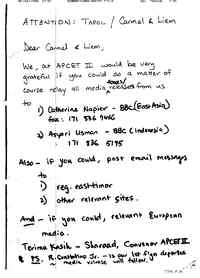 ATTENTION: TAPOL / Carmel & Liem
Dear Carmel & Liem,
We, at APCET II would be very
grateful if you could as a matter of
course relay all media releases from us
to
1) Catherine Napier - BBC (East Asia)
fax: 171 836 9446
2) Asyari Usman - BBC (Indonesia)
: 171 836 5195
Also - if you could, post email messages
to
1) reg. easttimor
2) other relevant sites.
And - if you could, relevant European
media.
Terima Kasih - Sharaad, Convenor APCET II
PS. R. Constantino Jr. - is
media release will follow.